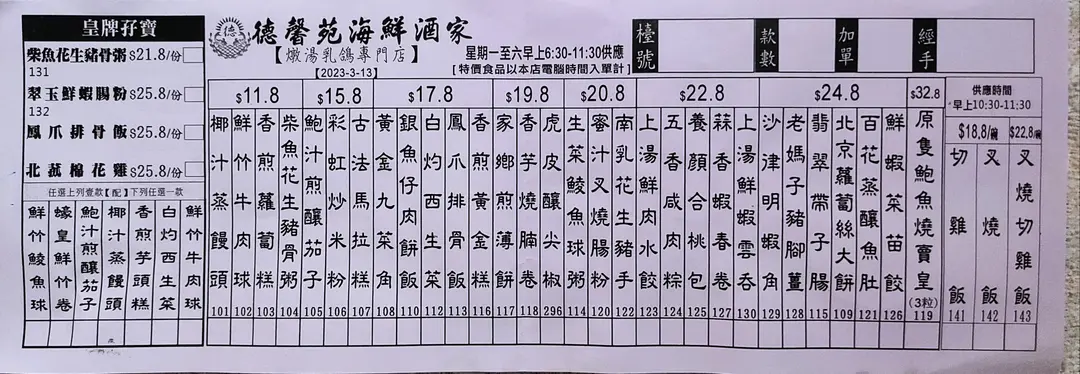 皇牌孖寶
柴魚花生豬骨粥 $21.8/份
131
翠玉鮮蝦腸粉 $25.8/份
132
鳳爪排骨飯 $25.8/份
北菰棉花雞 $25.8/份
任選上列壹款【配】下列任選一款
鮮竹鯪魚球
蠔皇鮮竹卷
鮑汁煎釀茄子
椰汁蒸饅頭
香煎芋頭糕
白灼西生菜
鮮竹牛肉球
德馨苑海鮮酒家
【燉湯乳鴿專門店】
【2023-3-13】
星期一至六早上6:30-11:30供應
[特價食品以本店電腦時間入單計]
檯號
款數
加單
經手
$11.8
椰汁蒸饅頭 101
鮮竹牛肉球 102
香煎蘿蔔糕 103
柴魚花生豬骨粥 104
$15.8
鮑汁煎釀茄子 105
彩虹炒米粉 106
古法馬拉糕 107
$17.8
黃金九菜角 108
銀魚仔肉餅飯 110
白灼西生菜 111
鳳爪排骨飯 112
香煎黃金糕 113
$19.8
家鄉煎薄餅 116
香芋燒腩卷 118
虎皮釀尖椒 296
$20.8
生菜鯪魚球粥 114
蜜汁叉燒腸粉 120
南乳花生豬手 122
$22.8
上湯鮮肉水餃 123
五香咸肉粽 124
養顏合桃包 125
蒜香蝦春卷 127
上湯鮮蝦雲吞 130
$24.8
沙律明蝦角 129
老媽子豬腳薑 128
翡翠帶子腸 115
北京蘿蔔絲大餅 109
百花蒸釀魚肚 121
鮮蝦菜苗餃 126
$32.8
原隻鮑魚燒賣皇(3粒) 119
供應時間
早上10:30-11:30
$18,8/碗
切雞飯 141
叉燒飯 142
$22,8/碗
叉燒切雞飯 143